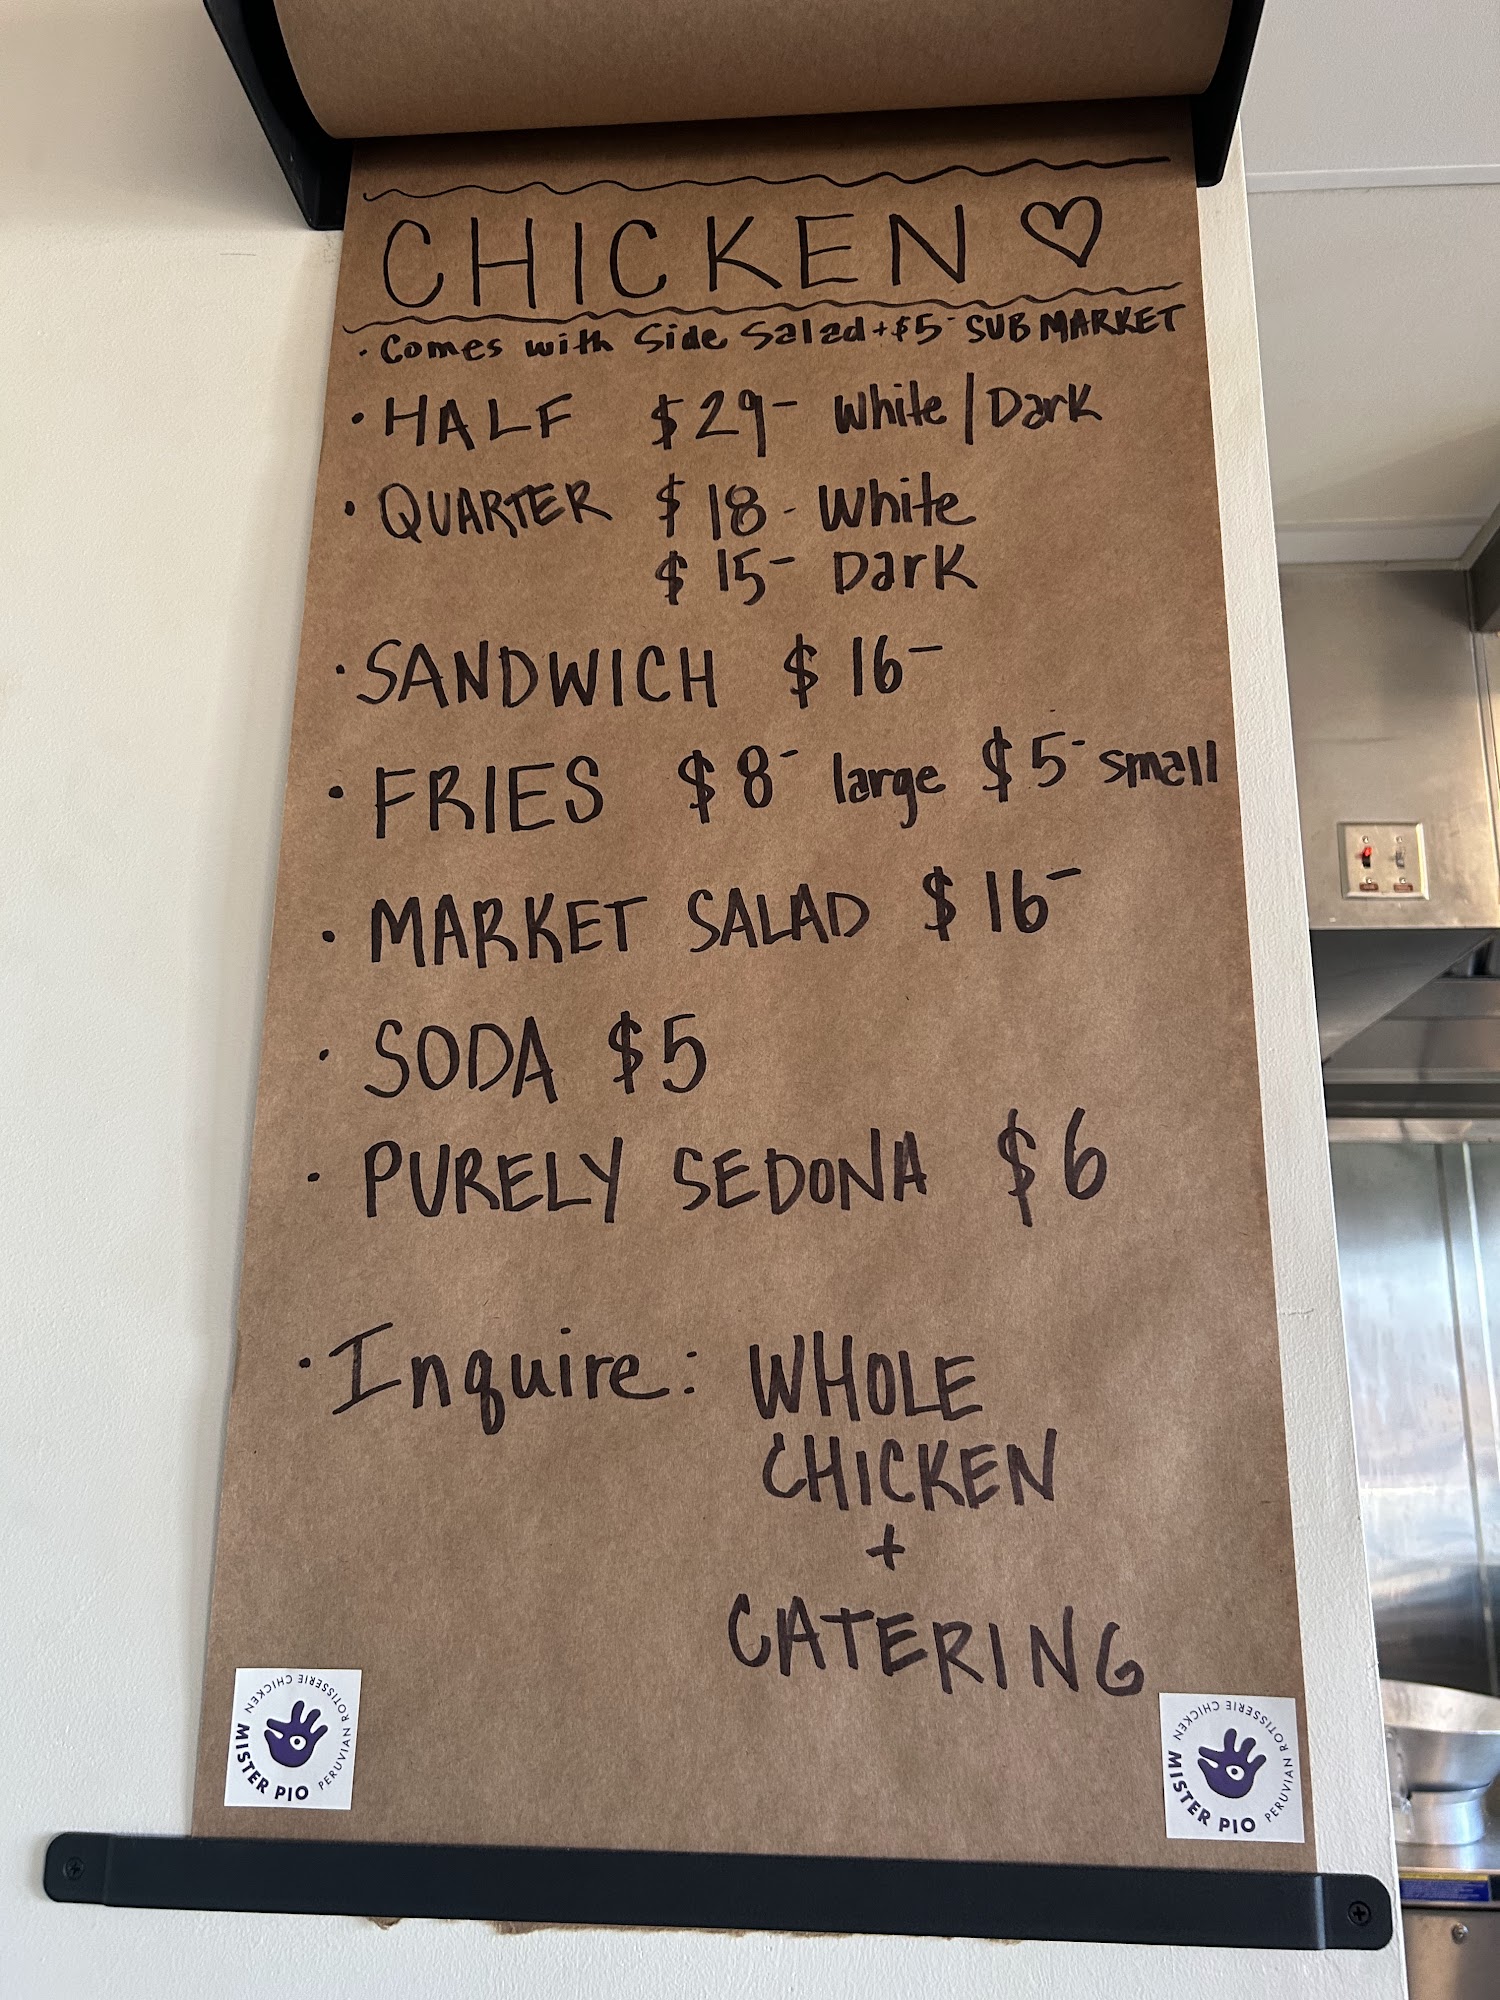 CHICKEN ♡
· Comes with Side Salad + $5- SUB MARKET
· HALF $29- White/Dark
· QUARTER $18- White
$15- Dark
· SANDWICH $16-
· FRIES $8- large $5- small
· MARKET SALAD $16-
· SODA $5
· PURELY SEDONA $6
· Inquire: WHOLE
CHICKEN
+
CATERING
MISTER PIO PERUVIAN ROTISSERIE CHICKEN
MISTER PIO PERUVIAN ROTISSERIE CHICKEN